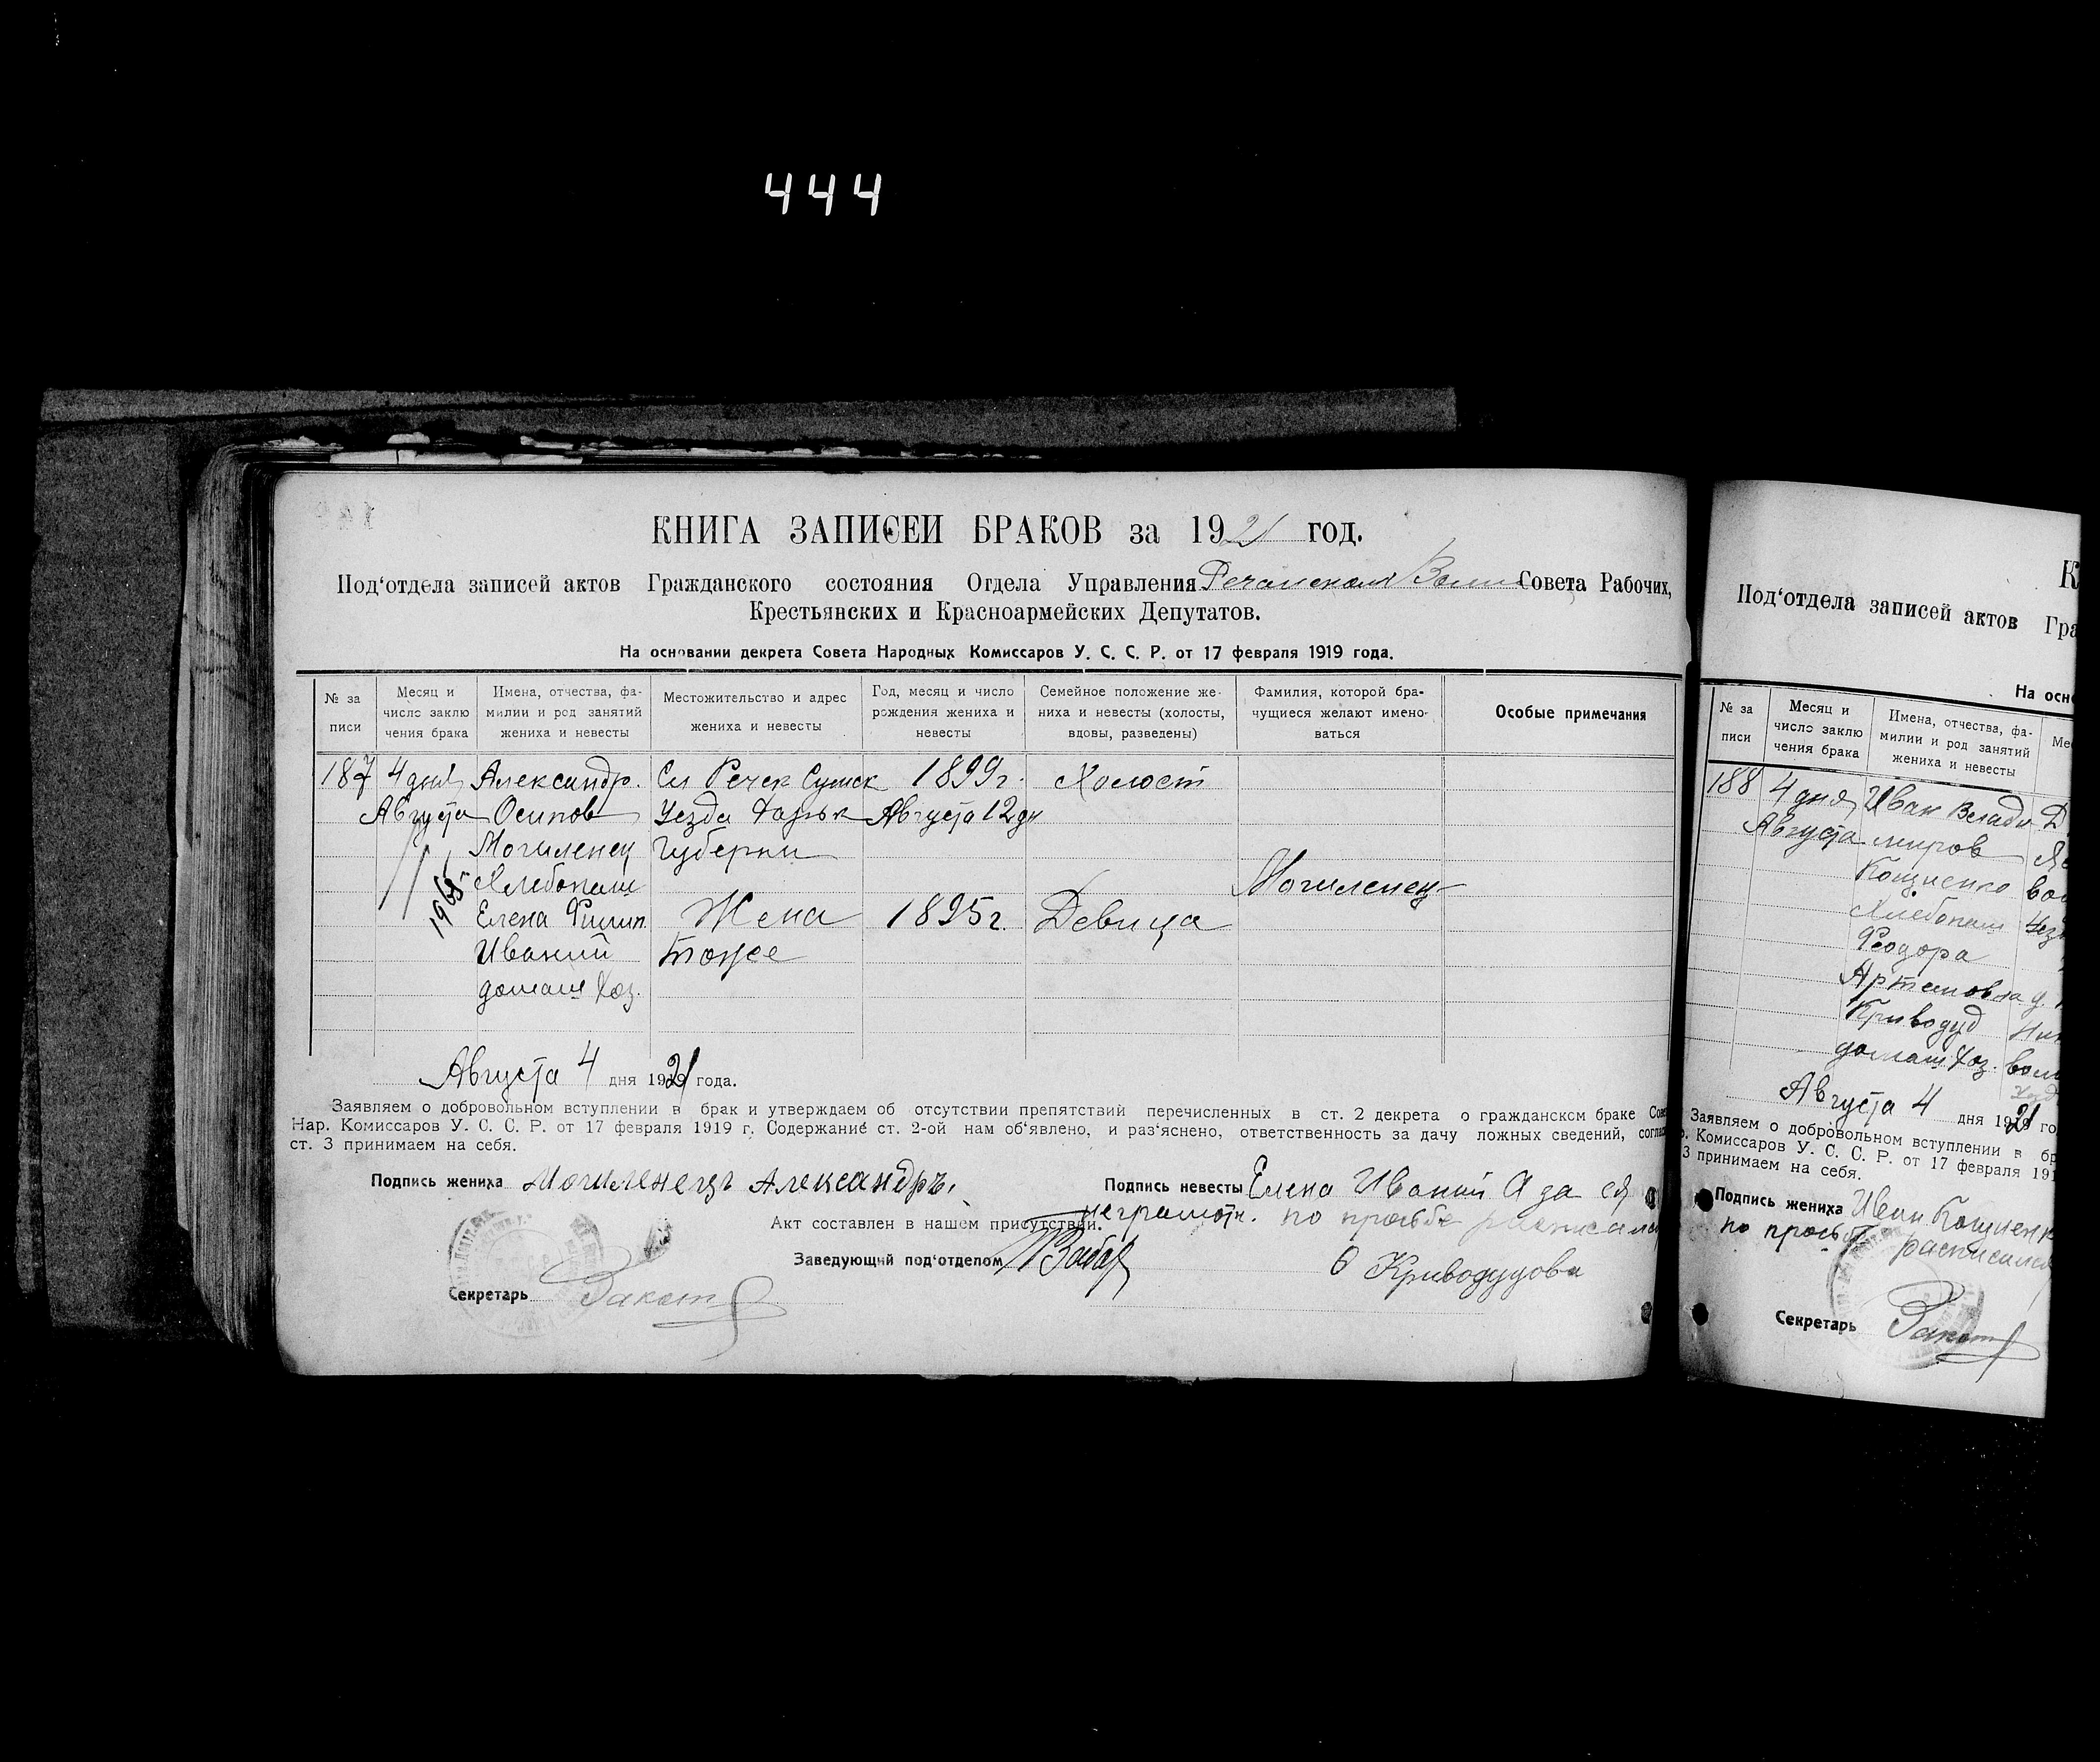 444
КНИГА ЗАПИСЕЙ БРАКОВ за 1921 год.
Под‘отдела записей актов Гражданского состояния Отдела Управления Речанской Совета Рабочих,
Крестьянских и Красноармейских Депутатов.
На основании декрета Совета Народных Комиссаров У. С. С. Р. от 17 февраля 1919 года.
№ за писи
Месяц и число заклю чения брака
Имена, отчества, фа- милии и род занятий жениха и невесты
Местожительство и адрес жениха и невесты
Год, месяц и число рождения жениха и невесты
Семейное положение же- ниха и невесты (холосты, вдовы, разведены)
Фамилия, которой бра- чущиеся желают имено- ваться
Особые примечания
187 4 дня Александр. Сл Речек Сумск 1899 г. Холост
Августа Осипов Уезда Харьк Августа 12 дн
Могиленец Губерни
Хлебопаш Могиленец
1965
Елена Филип. Жена 1895 г. Девица
Иваний тоже
домаш хоз.
Августа 4 дня 1921 года.
Заявляем о добровольном вступлении в брак и утверждаем об отсутствии препятствий перечисленных в ст. 2 декрета о гражданском браке Сове
Нар. Комиссаров У. С. С. Р. от 17 февраля 1919 г. Содержание ст. 2-ой нам об‘явлено, и раз‘яснено, ответственность за дачу ложных сведений, соглас
ст. 3 принимаем на себя.
Подпись жениха Могиленецъ Александръ.
Подпись невесты Елена Иваний А за ея
неграмотн. по просьбе расписалс
Акт составлен в нашем присутствии.
Заведующий под‘отделом
О Криводудова
Секретарь
К
Под‘отдела записей актов Гра
На осно
№ за писи
Месяц и число заклю чения брака
Имена, отчества, фа- милии и род занятий жениха и невесты
Мес
188 4 дня Иван Влади Д
Августа миров
Кощиенко вол
Хлебопаш Уез
Феодора
Артемовна д.
Криводуд
домаш хоз. вол
Августа 4 дня 1921 го
Заявляем о добровольном вступлении в бр
р. Комиссаров У. С. С. Р. от 17 февраля 191
3 принимаем на себя.
Подпись жениха Иван Кощиенк
по просьб расписался
Секретарь